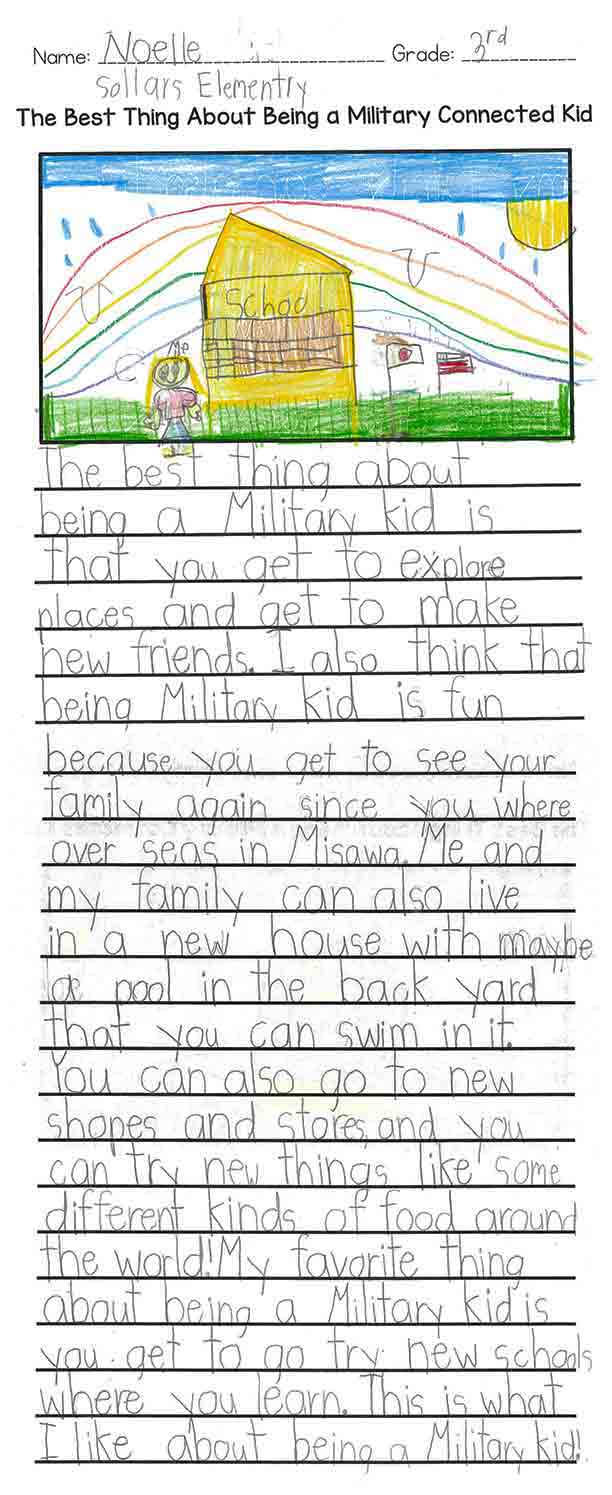 Name: Noelle Grade: 3rd
Sollars Elementry
The Best Thing About Being a Military Connected Kid
School
Me
The best thing about
being a Military kid is
that you get to explore
places and get to make
new friends. I also think that
being Military kid is fun
because you get to see your
family again since you where
over seas in Misawa. Me and
my family can also live
in a new house with maybe
a pool in the back yard
that you can swim in it.
You can also go to new
shopes and stores, and you
can try new things like some
different kinds of food around
the world! My favorite thing
about being a Military kid is
you get to go try new schools
where you learn. This is what
I like about being a Military kid!